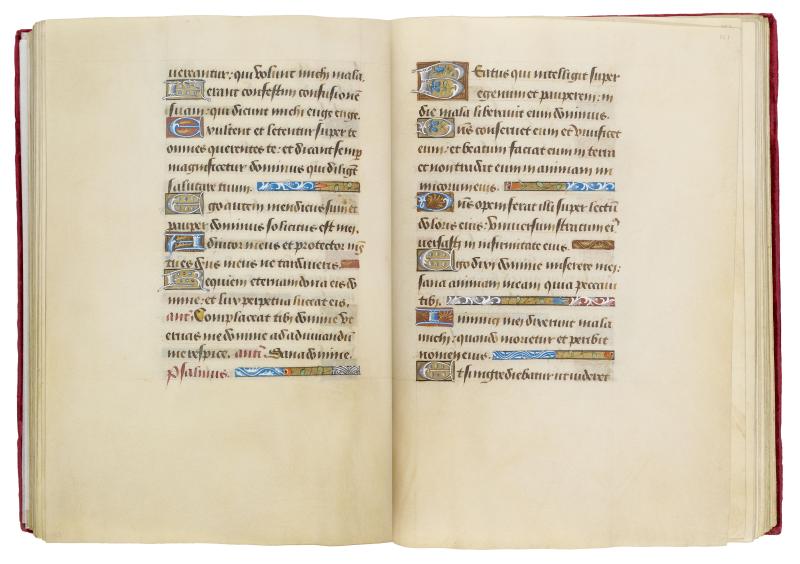 uereantur: qui volunt michi mala.
Ferant confestim confusionē
suam: qui dicunt michi euge euge.
Exultent et letentur super te
omnes querentes te: et dicant semp
magnificetur dominus qui diligūt
salutare tuum.
Ego autem mendicus sum et
pauper dominus solicitus est mei.
Adiutor meus et protector m̄s
tu es deus meus ne tardaueris.
Requiem eternam dona eis do
mine: et lux perpetua luceat eis.
ant. Complaceat tibi domine vt
eruas me domine ad adiuuandū
me respice. ant. Sana domine.
Psalmus.
Beatus qui intelligit super
egenum et pauperem: in
die mala liberauit eum dominus.
Dn̄s conseruet eum et viuificet
eum: et beatum faciat eum in terra
et non tradat eum in animam ini
micorum eius.
Dn̄s opem ferat illi super lectū
doloris eius: vniuersum stratum ei9
versasti in infirmitate eius.
Ego dixi domine miserere mei:
sana animam meam quia peccaui
tibi.
Inimici mei dixerunt mala
michi: quando morietur et peribit
nomen eius.
Et si ingrediebatur ut videret